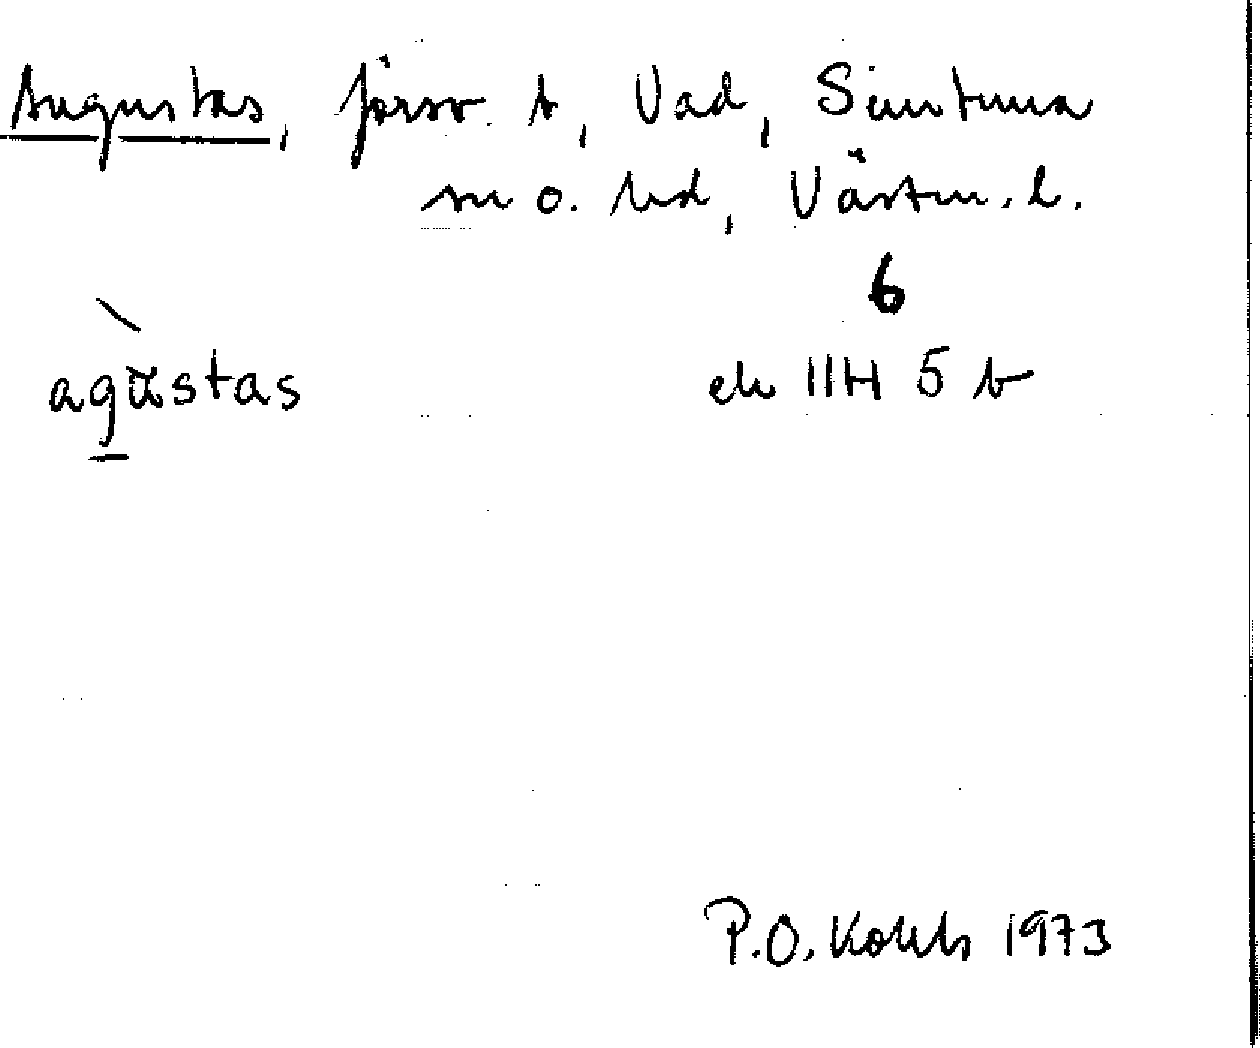 Augustas, försv. t, Vad, Simtuna
sn o. hd, Västm. l.
6
agüstas ek 11H 5 b
P.O. Kolsh 1973